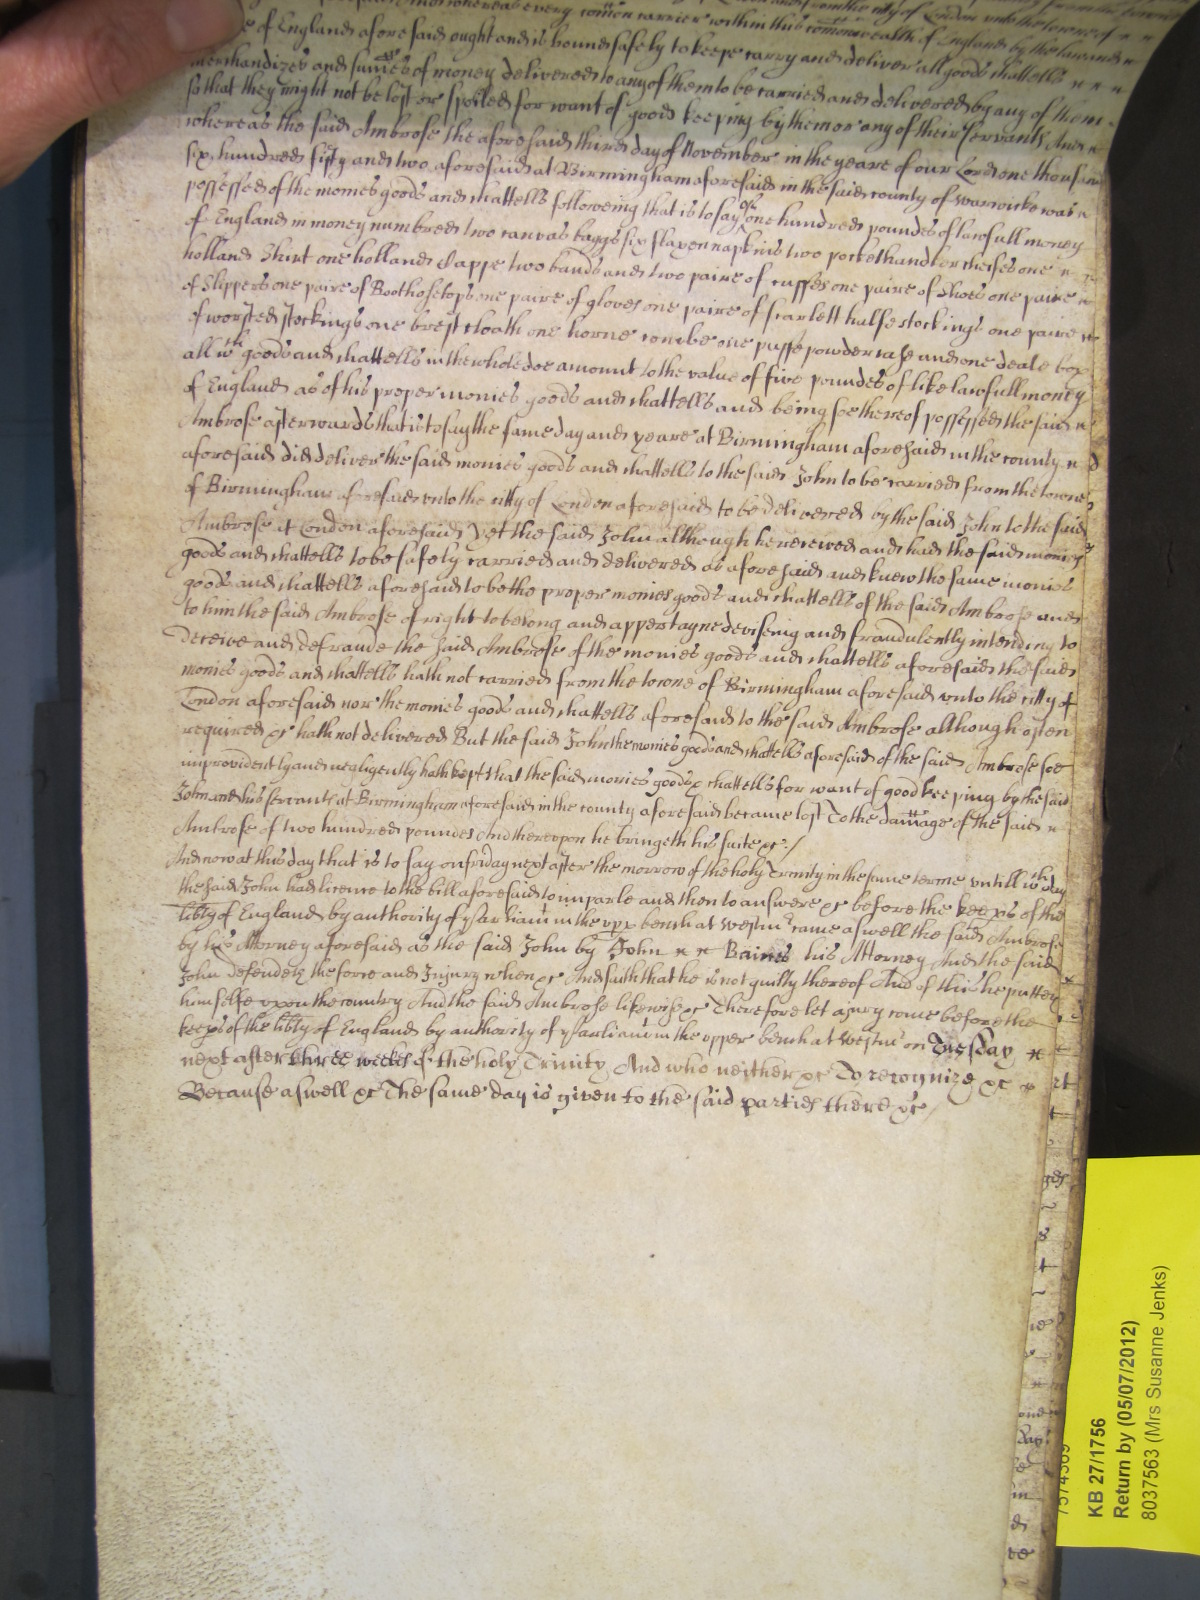 and from the city of London unto the towne of
And whereas every comon carrier within this comonwealth of England by the law and
of England aforesaid ought and is bound safely to keepe carry and deliver all goods chattells
merchandizes and summes of money delivered to any of them to be carried and delivered by any of them
so that they might not be lost or spoiled for want of good keeping by them or any of their servants And
whereas the said Ambrose the aforesaid third day of November in the yeare of our Lord one thousand
six hundred fifty and two aforesaid at Birmingham aforesaid in the said county of Warwicke was
possessed of the monies goods and chattells following that is to say of one hundred poundes of lawfull money
of England in money numbred two canvas baggs six flaxen napkins two pockethandkercheifes one
holland Shirt one holland Cappe two bands and two paire of cuffes one paire of Shoes one paire
of Slippers one paire of Boothosetops one paire of gloves one paire of scarlett halfe stockings one paire
of worsted stockings one brest cloath one horne combe one puffe powder case and one deale box
all wch goods and chattells in the whole doe amount to the value of five poundes of like lawfull money
of England as of his proper monies goods and chattells and being soe thereof possessed the said
Ambrose afterwards that is to say the same day and yeare at Birmingham aforesaid in the county
aforesaid did deliver the said monies goods and chattells to the said John to be carried from the towne
of Birmingham aforesaid unto the citty of London aforesaid to be delivered by the said John to the said
Ambrose at London aforesaid Yet the said John although he receved and had the said monies
goods and chattells to be safely carried and delivered as aforesaid and knew the same monies
goods and chattells aforesaid to be the proper monies goods and chattells of the said Ambrose and
to him the said Ambrose of right to belong and appertayne devising and fraudulently intending to
deceive and defraude the said Ambrose of the monies goods and chattells aforesaid the said
monies goods and chattells hath not carried from the towne of Birmingham aforesaid unto the citty of
London aforesaid nor the monies goods and chattells aforesaid to the said Ambrose although often
required &c hath not delivered But the said John the monies goods and chattells aforesaid of the said Ambrose soe
improvidently and negligently hath kept that the said monies goods & chattells for want of good keeping by the said
John and his servants at Birmingham aforesaid in the county aforesaid became lost To the damage of the said
Ambrose of two hundred poundes And thereupon he bringeth his suite &c /
And now at this day that is to say on friday next after the morrow of the holy Trinity in the same terme untill wch day
the said John had licence to the bill aforesaid to imparle and then to answere &c before the keepers of the
libty of England by authority of Parliamt in the upp bench at Westmr came aswell the said Ambrose
by his Attorney aforesaid as the said John by John Baines his Attorney And the said
John defendeth the force and Injury when &c And saith that he is not guilty thereof And of this he putteth
himselfe upon the country And the said Ambrose likewise &c Therefore let a jury come before the
keeps of the libty of England by authority of Parliamt in the upper bench at Westmr on Tuesday
next after three weekes of the holy Trinity And who neither &c To recognize &c
Because aswell &c The same day is given to the said parties there &c /
KB 27/1756
Return by (05/07/2012)
8037563 (Mrs Susanne Jenks)